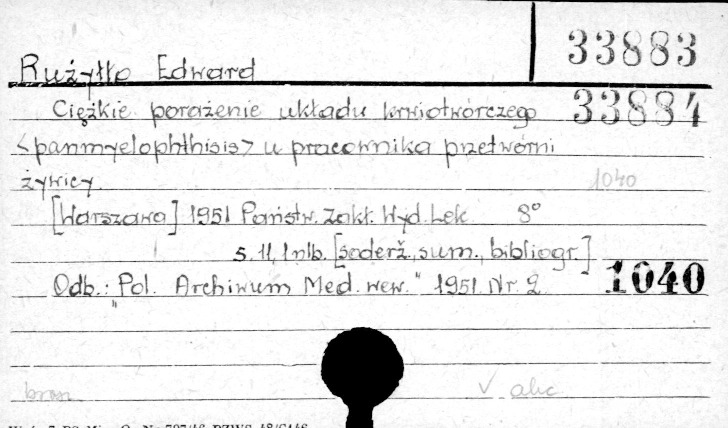 33883
Rużyłło Edward
Ciężkie porażenie układu krwiotwórczego 33884
<panmyelophthisis> u pracownika przetwórni
żywicy. 1040
[Warszawa] 1951 Państw. Zakł. Wyd. Lek 8°
s. 11, 1 nlb. [soderž., sum., bibliogr.]
Odb.: "Pol. Archiwum Med. wew." 1951 Nr. 2 1040
brosz ✓ alic